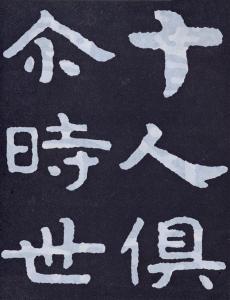 十人俱
尒時世